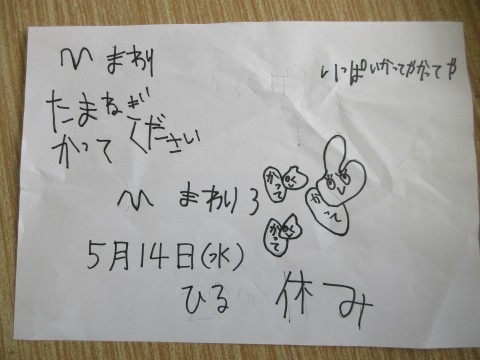 ひまわり
いっぱいかってやかってや
たまねぎ
かってください
ひまわり3
かって
かって
かって
5月14日(水)
ひる 休み